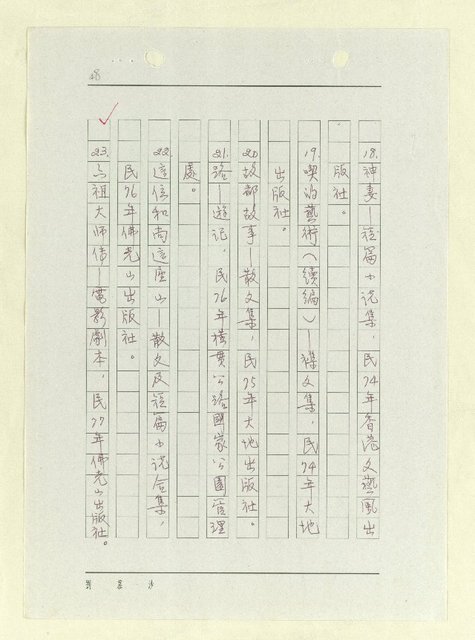 48
18.神妻—短篇小說集，民74年香港文藝風出
版社。
19.喫的藝術(續編)—雜文集，民74年大地
出版社。
20.故都故事—散文集，民75年大地出版社。
21.路—遊記，民76年橫貫公路國家公園管理
處。
22.這位和尚這座山—散文及短篇小說合集，
民76年佛光山出版社。
23.六祖大師傳—電影劇本，民77年佛光山出版社。